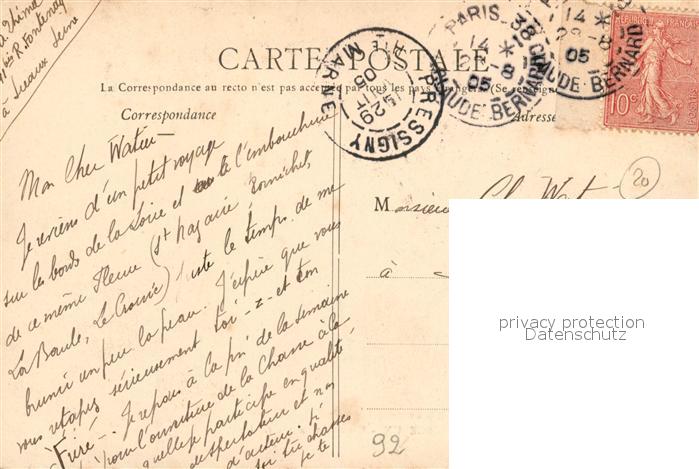 à Sceaux Seine
CARTE POSTALE
La Correspondance au recto n'est pas acceptée par tous les pays étrangers (Se renseigner
Correspondance
Adresse
RÉPUBLIQUE FRANÇAISE
10c
PARIS
14 *
28-8
05
CLAUDE-BERNARD
PARIS-38
14 *
28-8
05
CLAUDE-BERNARD
PRESSIGNY
HTE MARNE
29
05
20
Mon Cher Watier
Je reviens d'un petit voyage
sur les bords de la Loire et de l'embouchure
de ce même fleuve (St Nazaire Pornichet,
La Baule, Le Croisic) juste le temps de me
brunir un peu la peau. J'espère que vous
vous retapez sérieusement toi -z- et ton
Je repars à la fin de la semaine
pour l'ouverture de la Chasse à la
quelle je participe en qualité
de spectateur et non
d'acteur. Si
tu chasses
je te
Monsieur Ch. Wat
à
92
privacy protection
Datenschutz